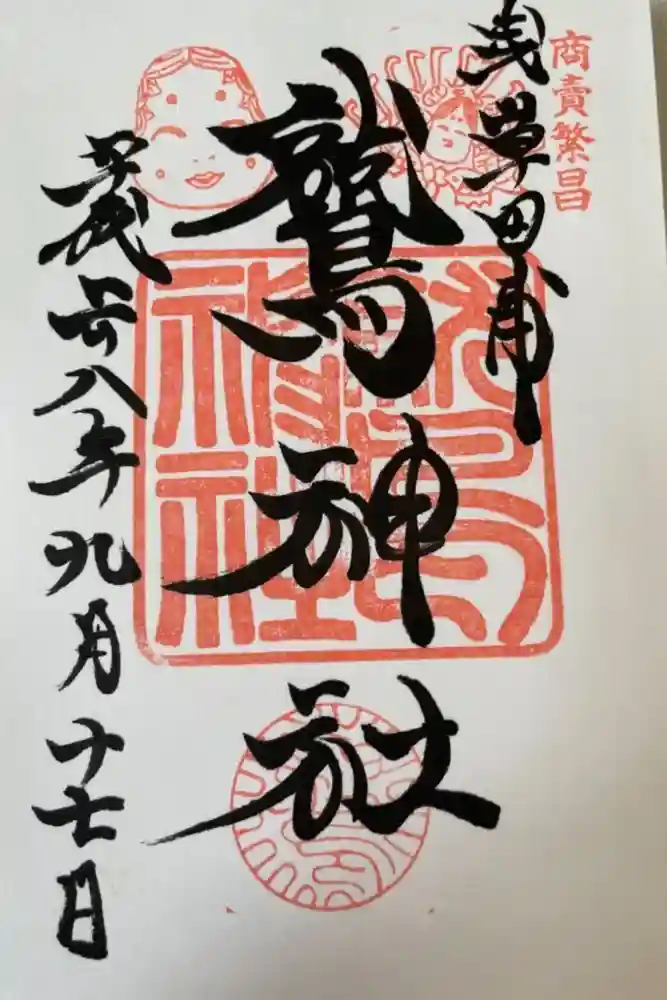 商賣繁昌
浅草田甫
鷲神社
平成廿八年九月十七日
鷲神社